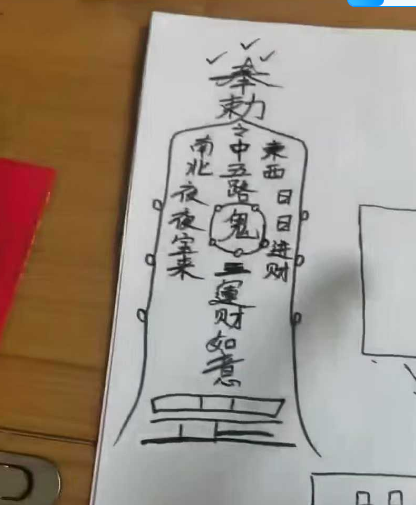 奉勅
東西日日进财
中五路鬼三運财如意
南北夜夜宝来